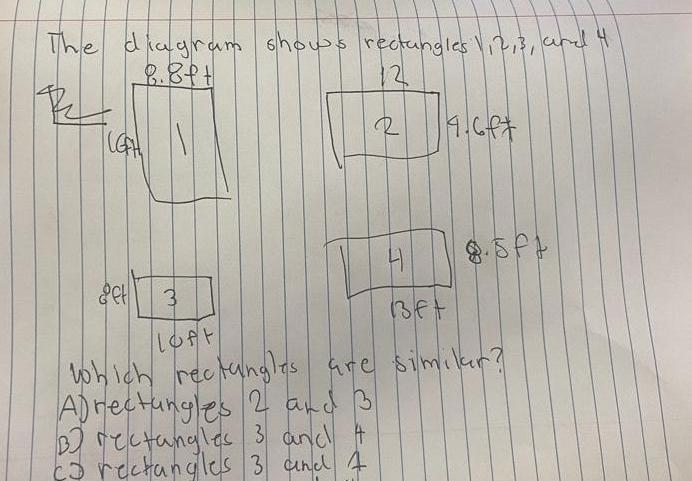 The diagram shows rectangles 1,2,3, and 4
8.8ft 12
16ft 1 2 9.6ft
4 8.5ft
8ft 3
13ft
10ft
Which rectangles are similar?
A) rectangles 2 and 3
B) rectangles 3 and 4
C) rectangles 3 and 1